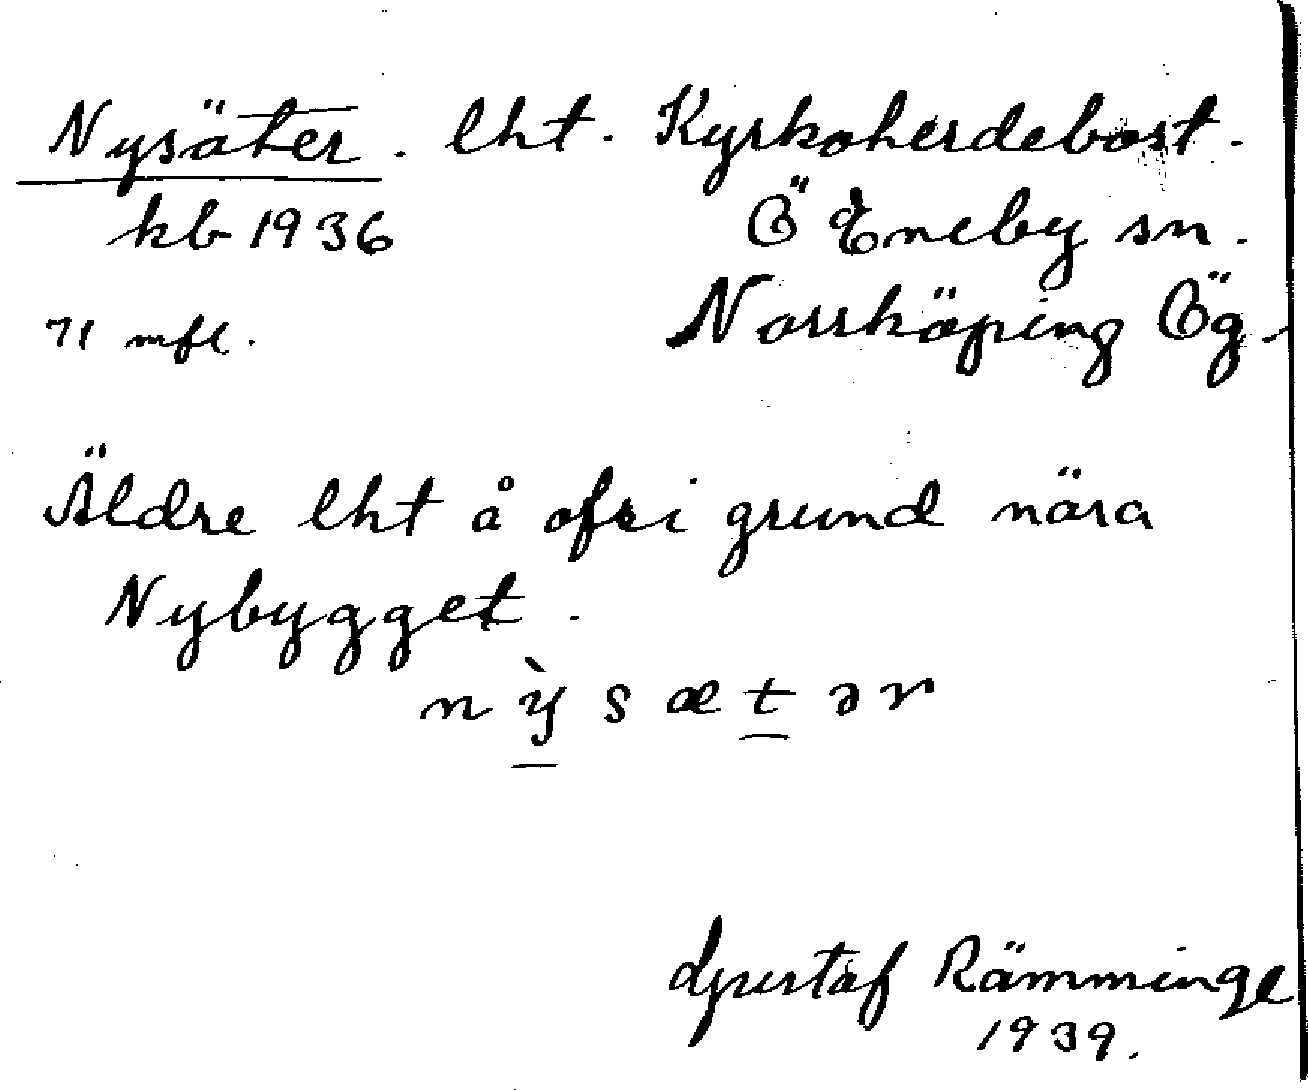 Nysäter. lht. Kyrkoherdebost.
kb 1936 Ö Eneby sn.
71 mfl. Norrköping Ög.
Äldre lht å ofri grund nära
Nybygget.
nỳsætər
Gustaf Ramminge
1939.